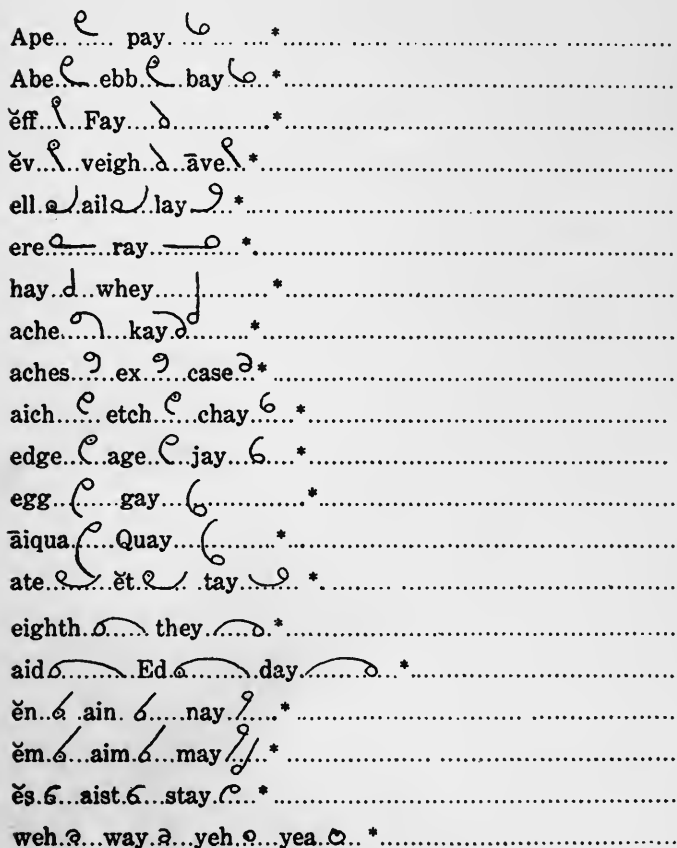 Ape pay *
Abe ebb bay *
ĕff Fay *
ĕv veigh āve *
ell ail lay *
ere ray *
hay whey *
ache kay *
aches ex case *
aich etch chay *
edge age jay *
egg gay *
āiqua Quay *
ate ĕt tay *
eighth they *
aid Ed day *
ĕn ain nay *
ĕm aim may *
ĕs aist stay *
weh way yeh yea *